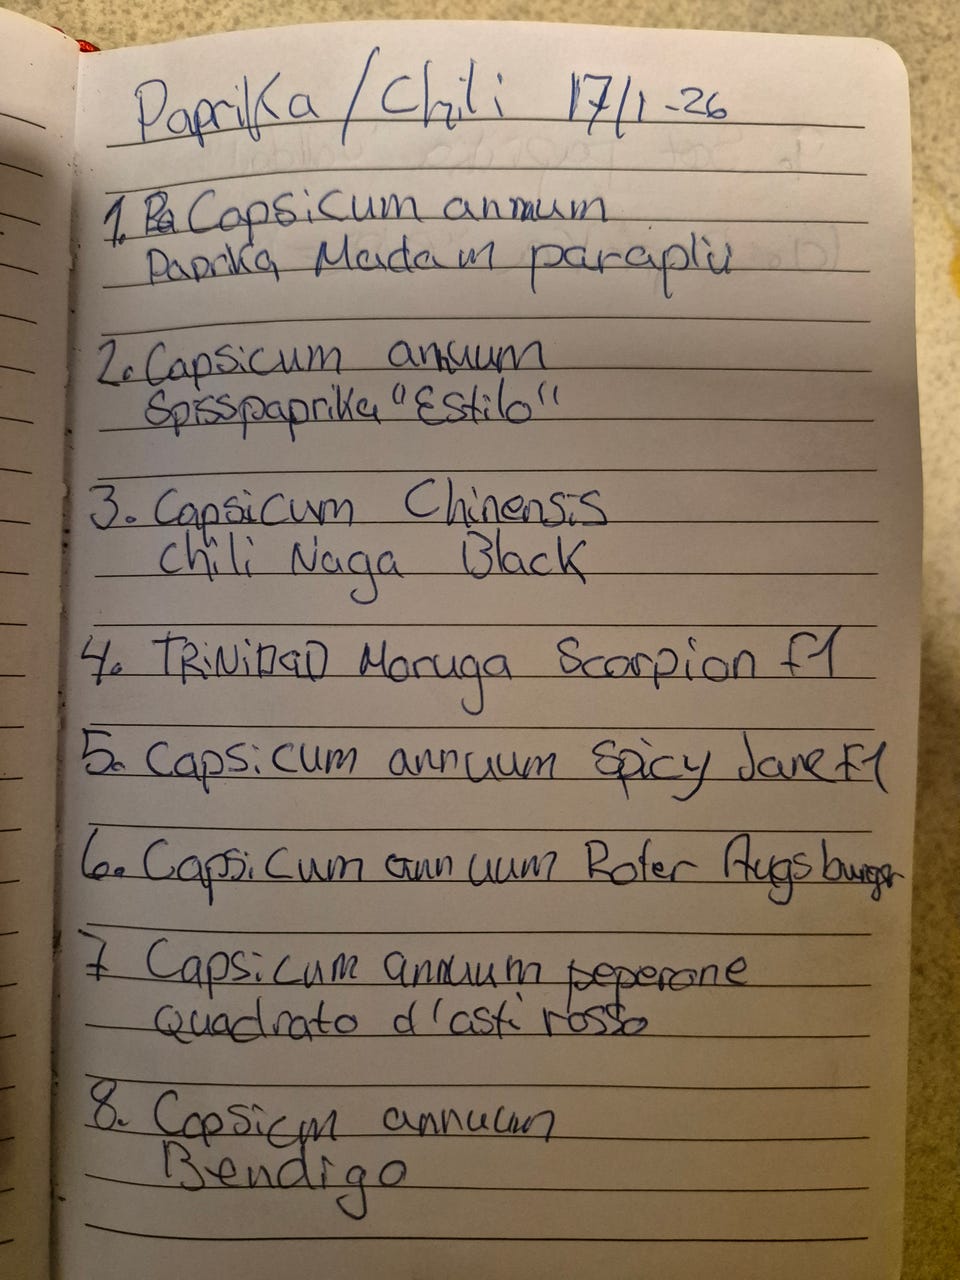 Paprika / Chili 17/1-26
1. Capsicum annuum
Paprika Madam paraplü
2. Capsicum annuum
Spisspaprika "Estilo"
3. Capsicum Chinensis
Chili Naga Black
4. TRiNiDAD Moruga Scorpion F1
5. Capsicum annuum Spicy Jane F1
6. Capsicum annuum Roter Augsburger
7 Capsicum annuum peperone
Quadrato d'asti rosso
8. Capsicm annuum
Bendigo